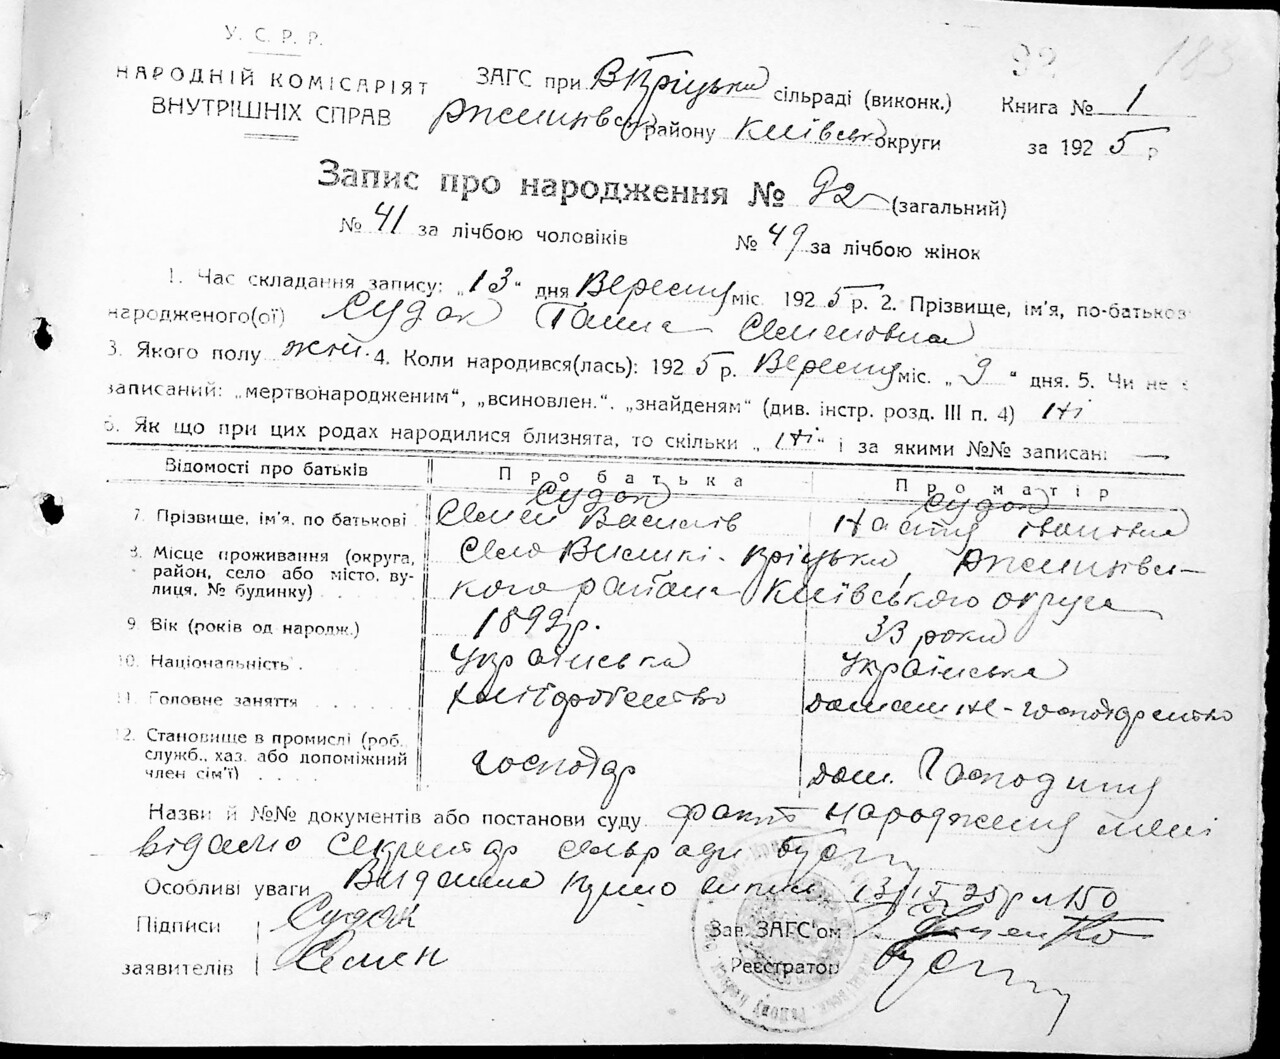 У. С. Р. Р.
92 183
НАРОДНІЙ КОМІСАРІЯТ
ВНУТРІШНІХ СПРАВ
ЗАГС при В Кріцька сільраді (виконк.) Книга № 1
району Київськ округи за 1925 р
Запис про народження № 92 (загальний)
№ 41 за лічбою чоловіків № 49 за лічбою жінок
1. Час складання запису: „13“ дня Вересня міс. 1925 р. 2. Прізвище, ім'я, по-батьков
народженого(ої) Судак Ганна Семеновна
3. Якого полу жін. 4. Коли народився(лась): 1925 р. Вересня міс. „9“ дня. 5. Чи не є
записаний: „мертвонародженим“, „всиновлен.“. „знайденям“ (див. інстр. розд. III п. 4) Ні
6. Як що при цих родах народилися близнята, то скільки „Ні“ і за якими №№ записані —
Відомості про батьків Про батька Про матір
7. Прізвище, ім'я, по батькові Судак Семен Василів Судак Настя Івановна
8. Місце проживання (округа, Село Кріцька,
район, село або місто, ву- кого района Київського округа
лиця, № будинку)
9. Вік (років од народж.) 1892 р. 33 роки
10. Національність Українська Українська
11. Головне заняття хліборобство домашнє-господарство
12. Становище в промислі (роб.
служб., хаз. або допоміжний господар дом. Господиня
член сім'ї)
Назви й №№ документів або постанови суду факт народження мені
відомо секретар сільради
Особливі уваги 25 р № 150
Підписи Судак Зав. ЗАГС'ом
заявителів Семен Реєстратор